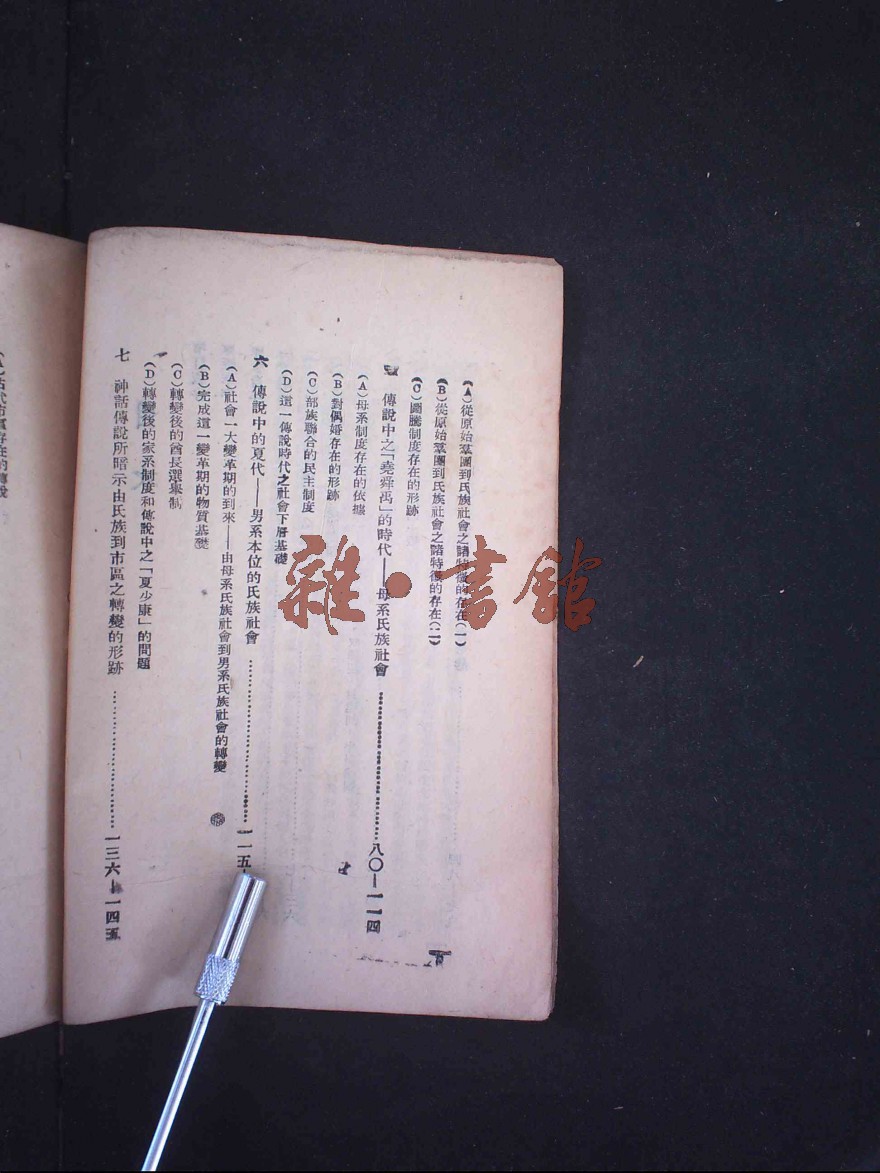 (A)從原始羣團到氏族社會之諸特徵的存在(一)
(B)從原始羣團到氏族社會之諸特徵的存在(二)
(C)圖騰制度存在的形跡
傳說中之「堯舜禹」的時代——母系氏族社會…………八〇—一一四
(A)母系制度存在的依據
(B)對偶婚存在的形跡
(C)部族聯合的民主制度
(D)這一傳說時代之社會下層基礎
六 傳說中的夏代——男系本位的氏族社會…………一一五
(A)社會一大變革期的到來——由母系氏族社會到男系氏族社會的轉變
(B)完成這一變革期的物質基礎
(C)轉變後的酋長選舉制
(D)轉變後的家系制度和傳說中之「夏少康」的問題
七 神話傳說所暗示由氏族到市區之轉變的形跡…………一三六—一四五
存在的傳說
雜·書館